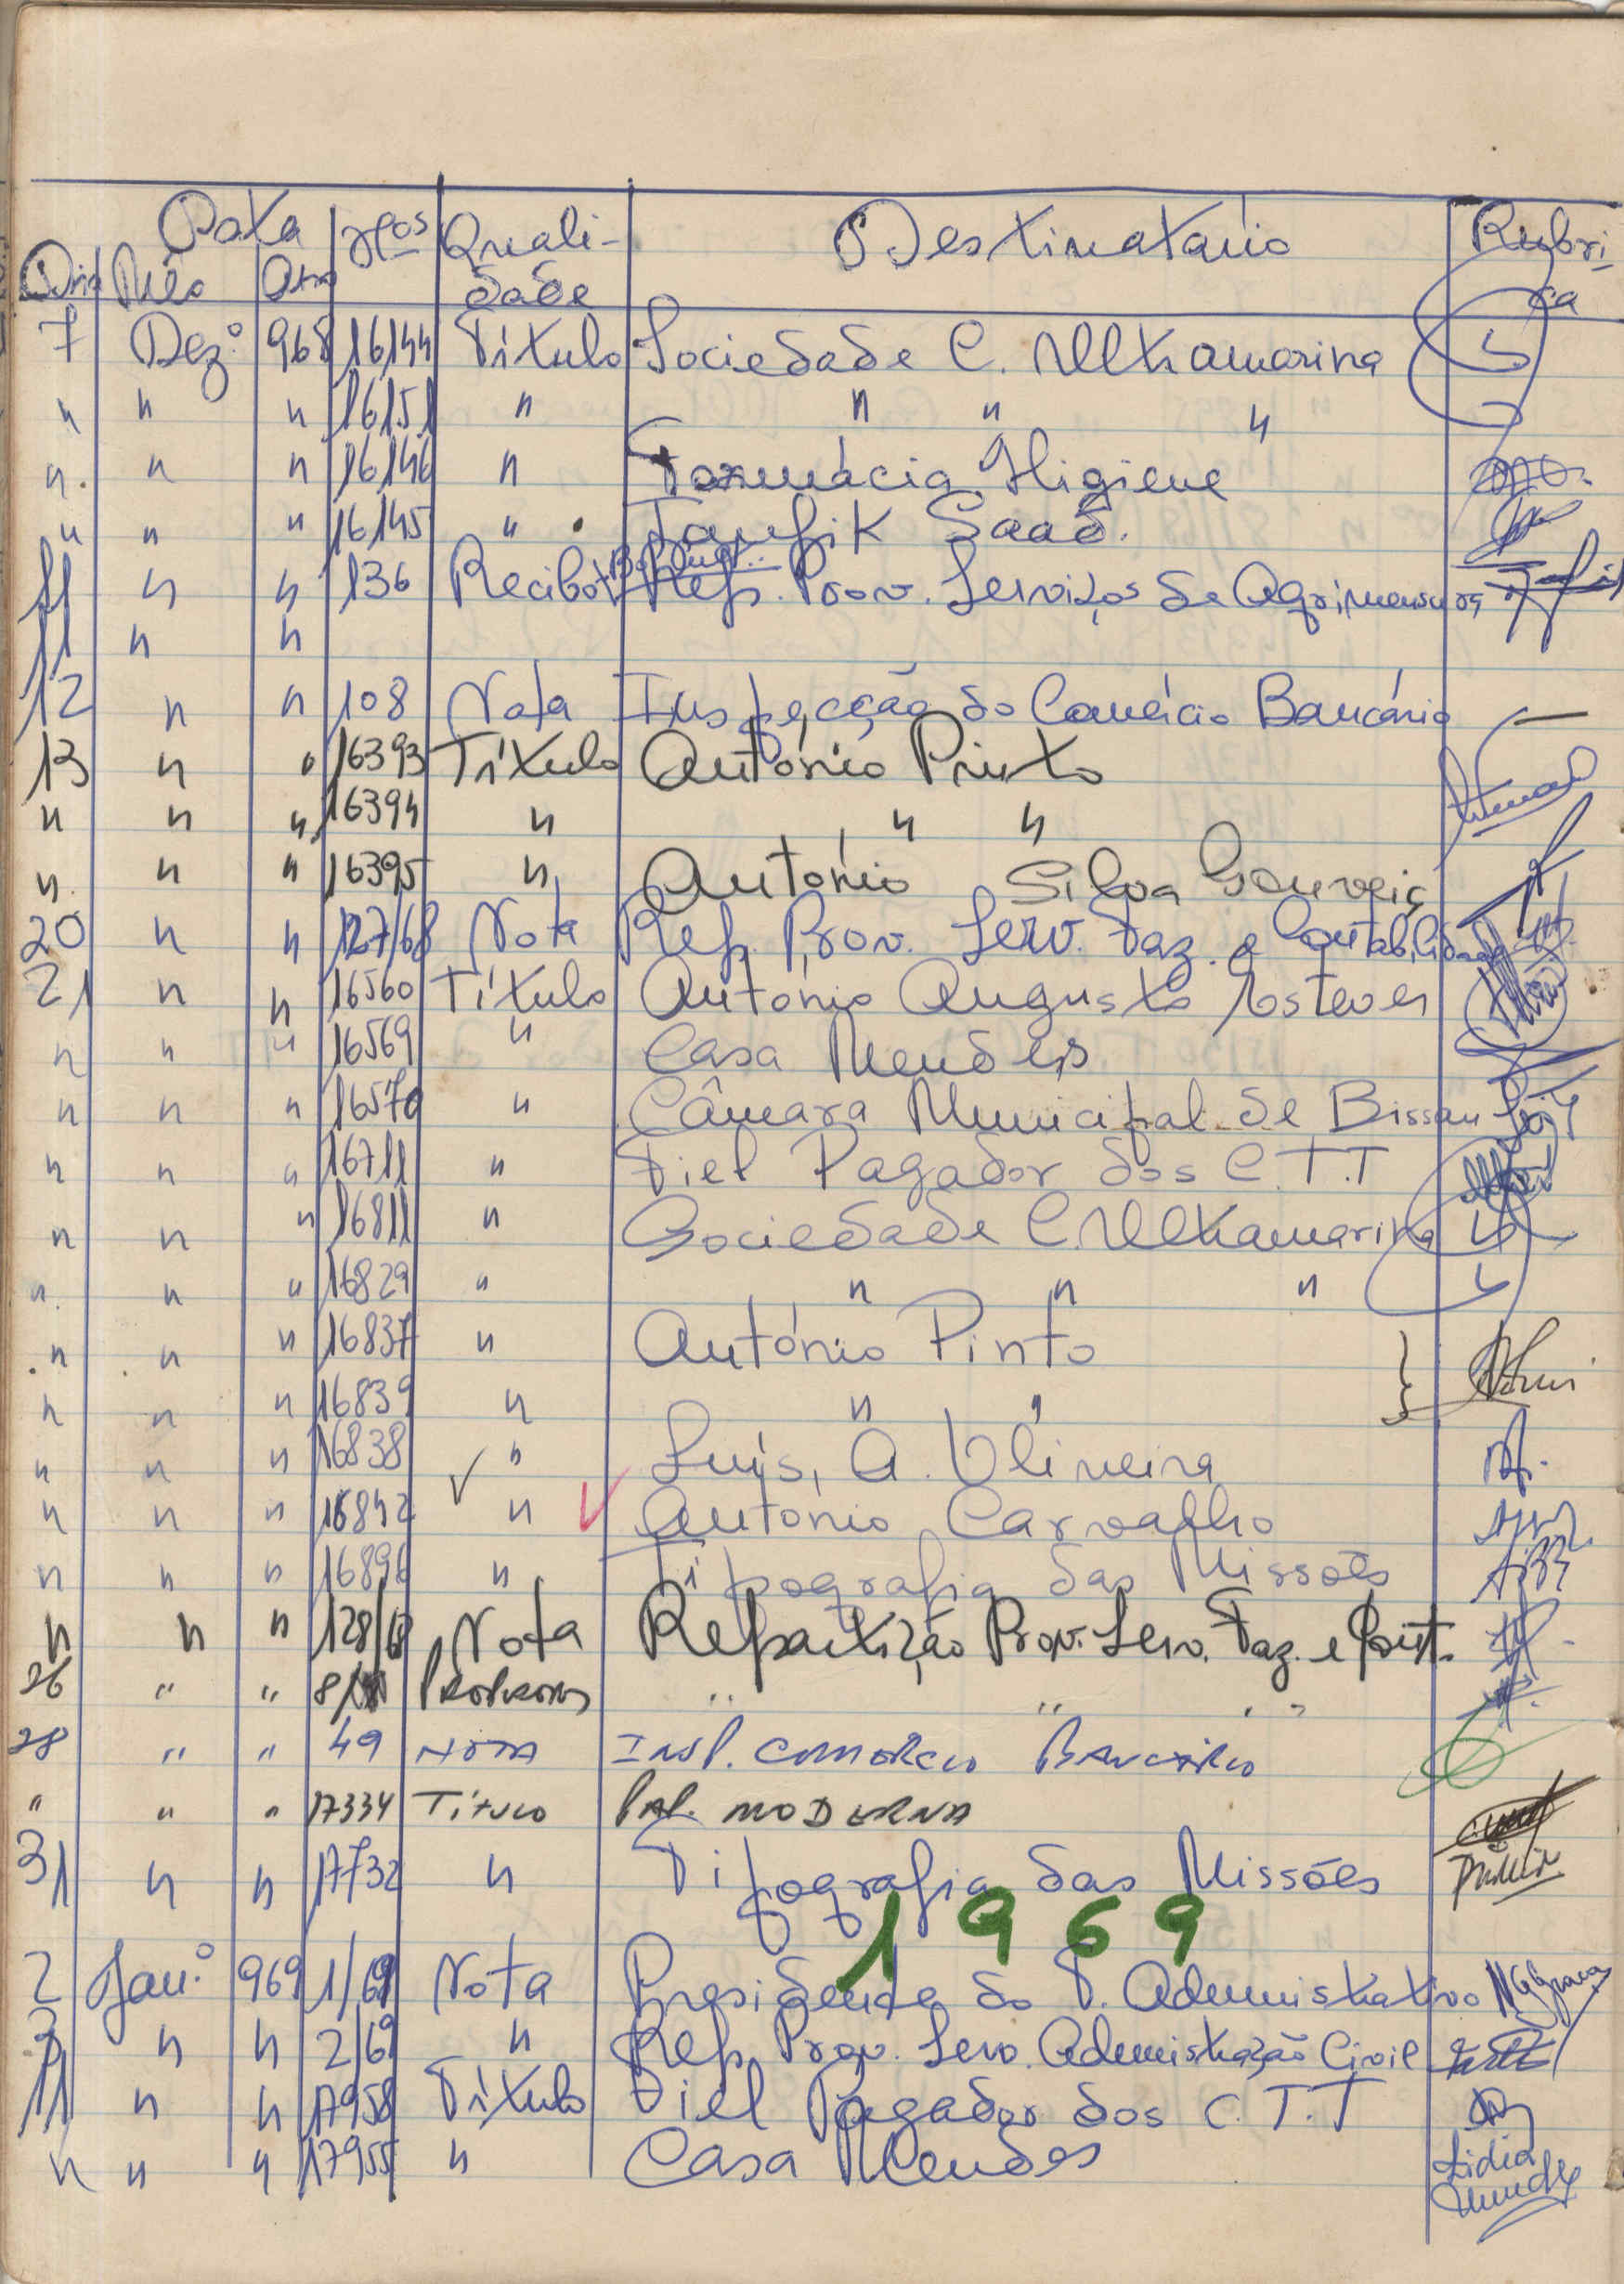 Data Nºs Quali- Destinatário Rubri-
Dia Mês Ano dade ca
7 Dez.º 968 16144 Título Sociedade C. Ultramarina
" " " 16151 " " " "
" " " 16146 " Farmácia Higiene
" " " 16145 " Taufik Saad.
11 " " 136 Recibo Rep. Prov. Serviços de Agrimensura
11 " "
12 " " 108 Nota Inspecção do Comércio Bancário
13 " " 16393 Título António Pinto
" " " 16394 " " "
" " " 16395 " António Silva Gouveia
20 " " 127/68 Nota Rep. Prov. Serv. Faz. e Contabilidade
21 " " 16560 Título António Augusto Esteves
" " " 16569 " Casa Mendes
" " " 16570 " Câmara Municipal de Bissau
" " " 16711 " Fiel Pagador dos C.T.T
" " " 16811 " Sociedade C. Ultramarina
" " " 16829 " " " "
" " " 16837 " António Pinto
" " " 16839 " " "
" " " 16838 " Luís, A. Oliveira
" " " 16842 " António Carvalho
" " " 16896 " Tipografia das Missões
" " " 128/68 Nota Repartição Prov. Serv. Faz. e Cont.
26 " " " " "
28 " " 49 Nota Insp. Comércio Bancário
" " " 17334 Título Pap. Moderna
31 " " 17732 " Tipografia das Missões
1969
2 Jan.º 969 1/69 Nota Presidente do T. Administrativo
3 " " 2/69 " Rep. Prov. Serv. Administração Civil
11 " " 17958 Título Fiel Pagador dos C.T.T
" " " 17955 " Casa Mendes Lidia